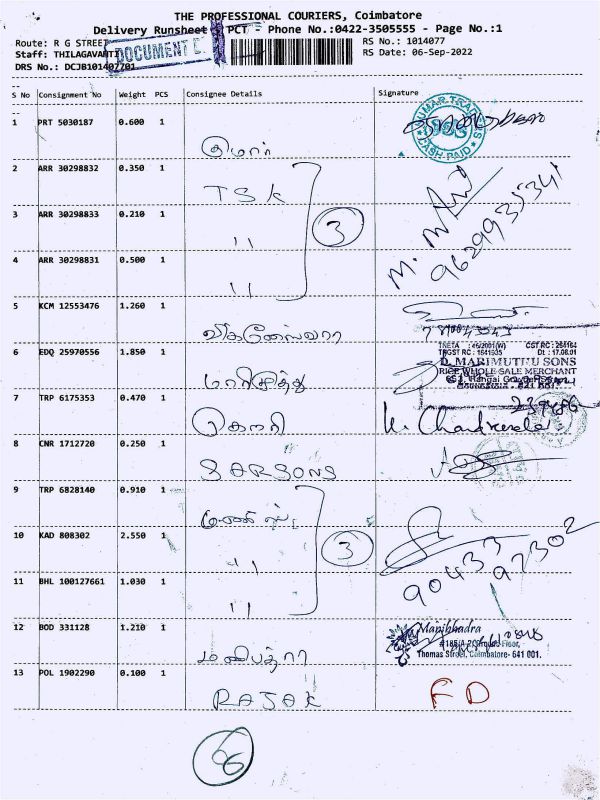 THE PROFESSIONAL COURIERS, Coimbatore
Delivery Runsheet PCT - Phone No.:0422-3505555 - Page No.:1
Route: R G STREET RS No.: 1014077
Staff: THILAGAVANTI RS Date: 06-Sep-2022
DOCUMENT
DRS No.: DCJB101407701
S No Consignment No Weight PCS Consignee Details Signature
1 PRT 5030187 0.600 1
குமார்
CASH PAID
2 ARR 30298832 0.350 1
TSK
3 ARR 30298833 0.210 1
" 3
M.
9629935341
4 ARR 30298831 0.500 1
"
5 KCM 12553476 1.260 1
விக்னேஸ்வரா
6 EDQ 25970556 1.850 1
TNETA : 45/2001(W) CST RC : 264164
TNGST RC : 1641935 Dt : 17.06.01
D. MARIMUTHU SONS
RICE WHOLE SALE MERCHANT
மாரிமுத்து
7 TRP 6175353 0.470 1
கௌரி
8 CNR 1712720 0.250 1
SARSONS
9 TRP 6828140 0.910 1
10 KAD 808302 2.550 1
" 3
90433 97302
11 BHL 100127661 1.030 1
"
12 BOD 331128 1.210 1
Manibhadra
Floor,
Thomas Street, Coimbatore- 641 001.
மணிபத்ரா
13 POL 1902290 0.100 1
RAJAK FD